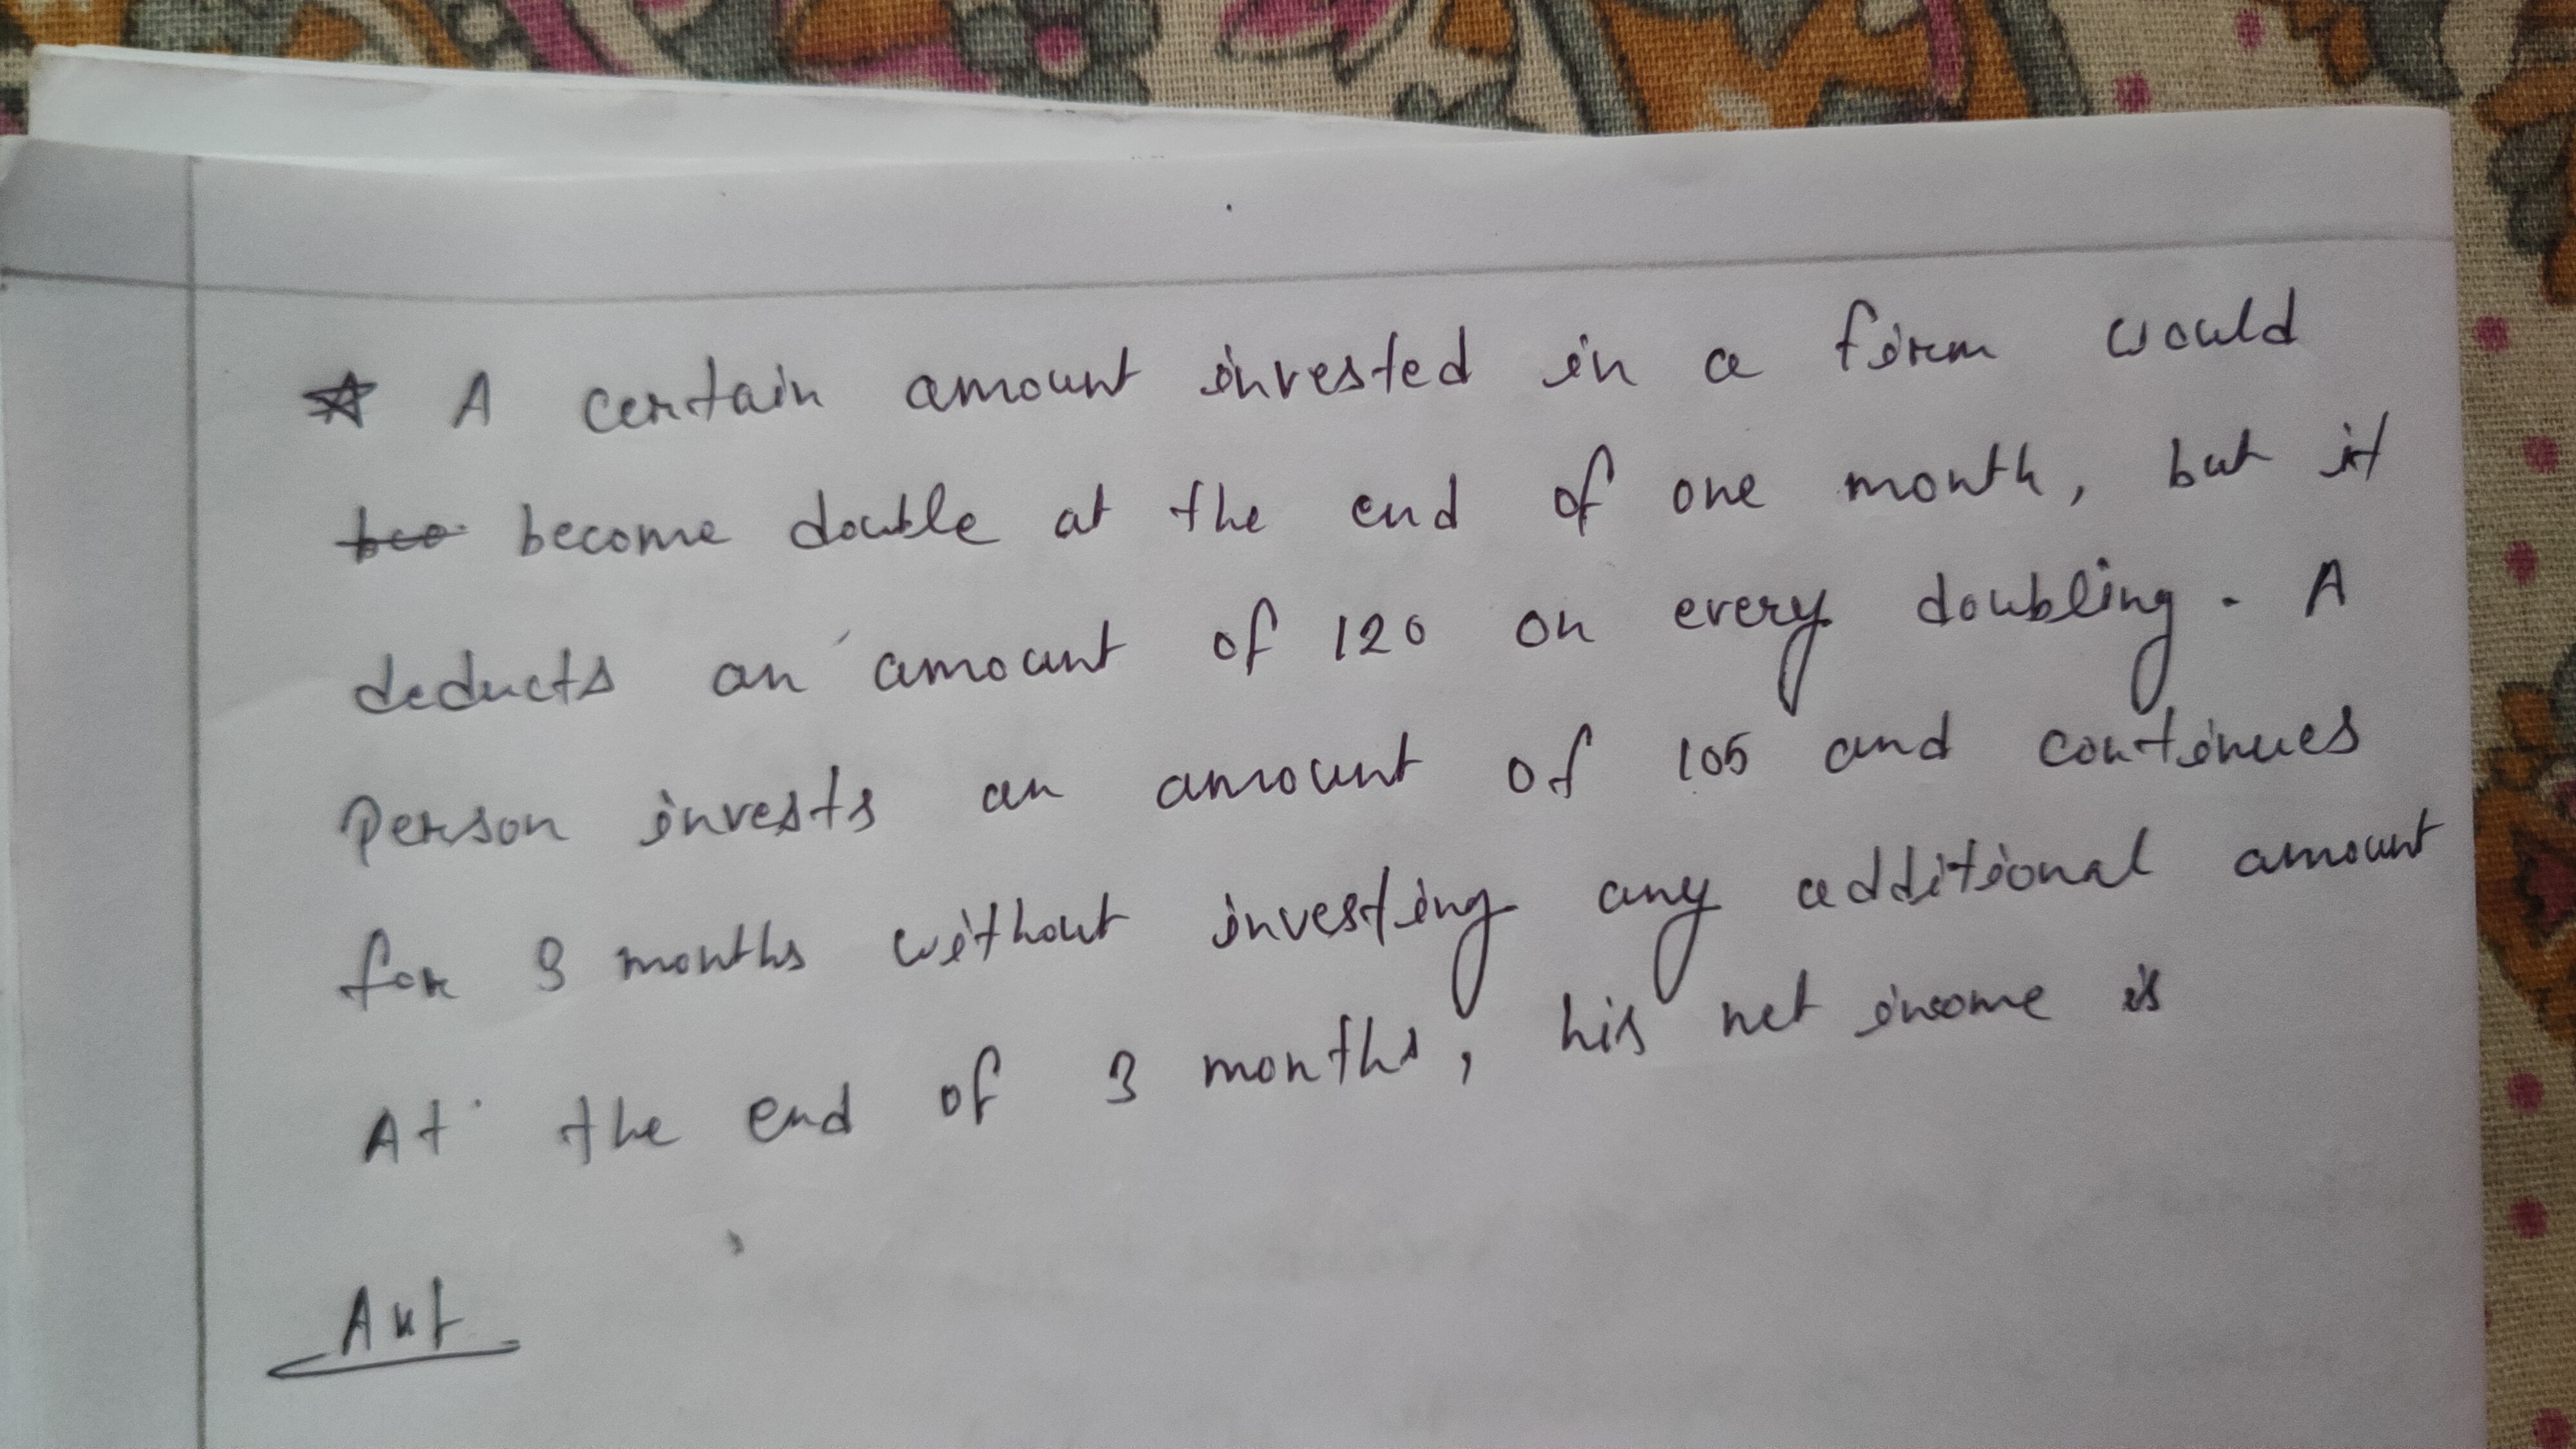 ☆ A certain amount invested in a firm would
become double at the end of one month, but it
deducts an amount of 120 on every doubling. A
Person invests an amount of 105 and continues
for 3 months without investing any additional amount
At the end of 3 months, his net income is